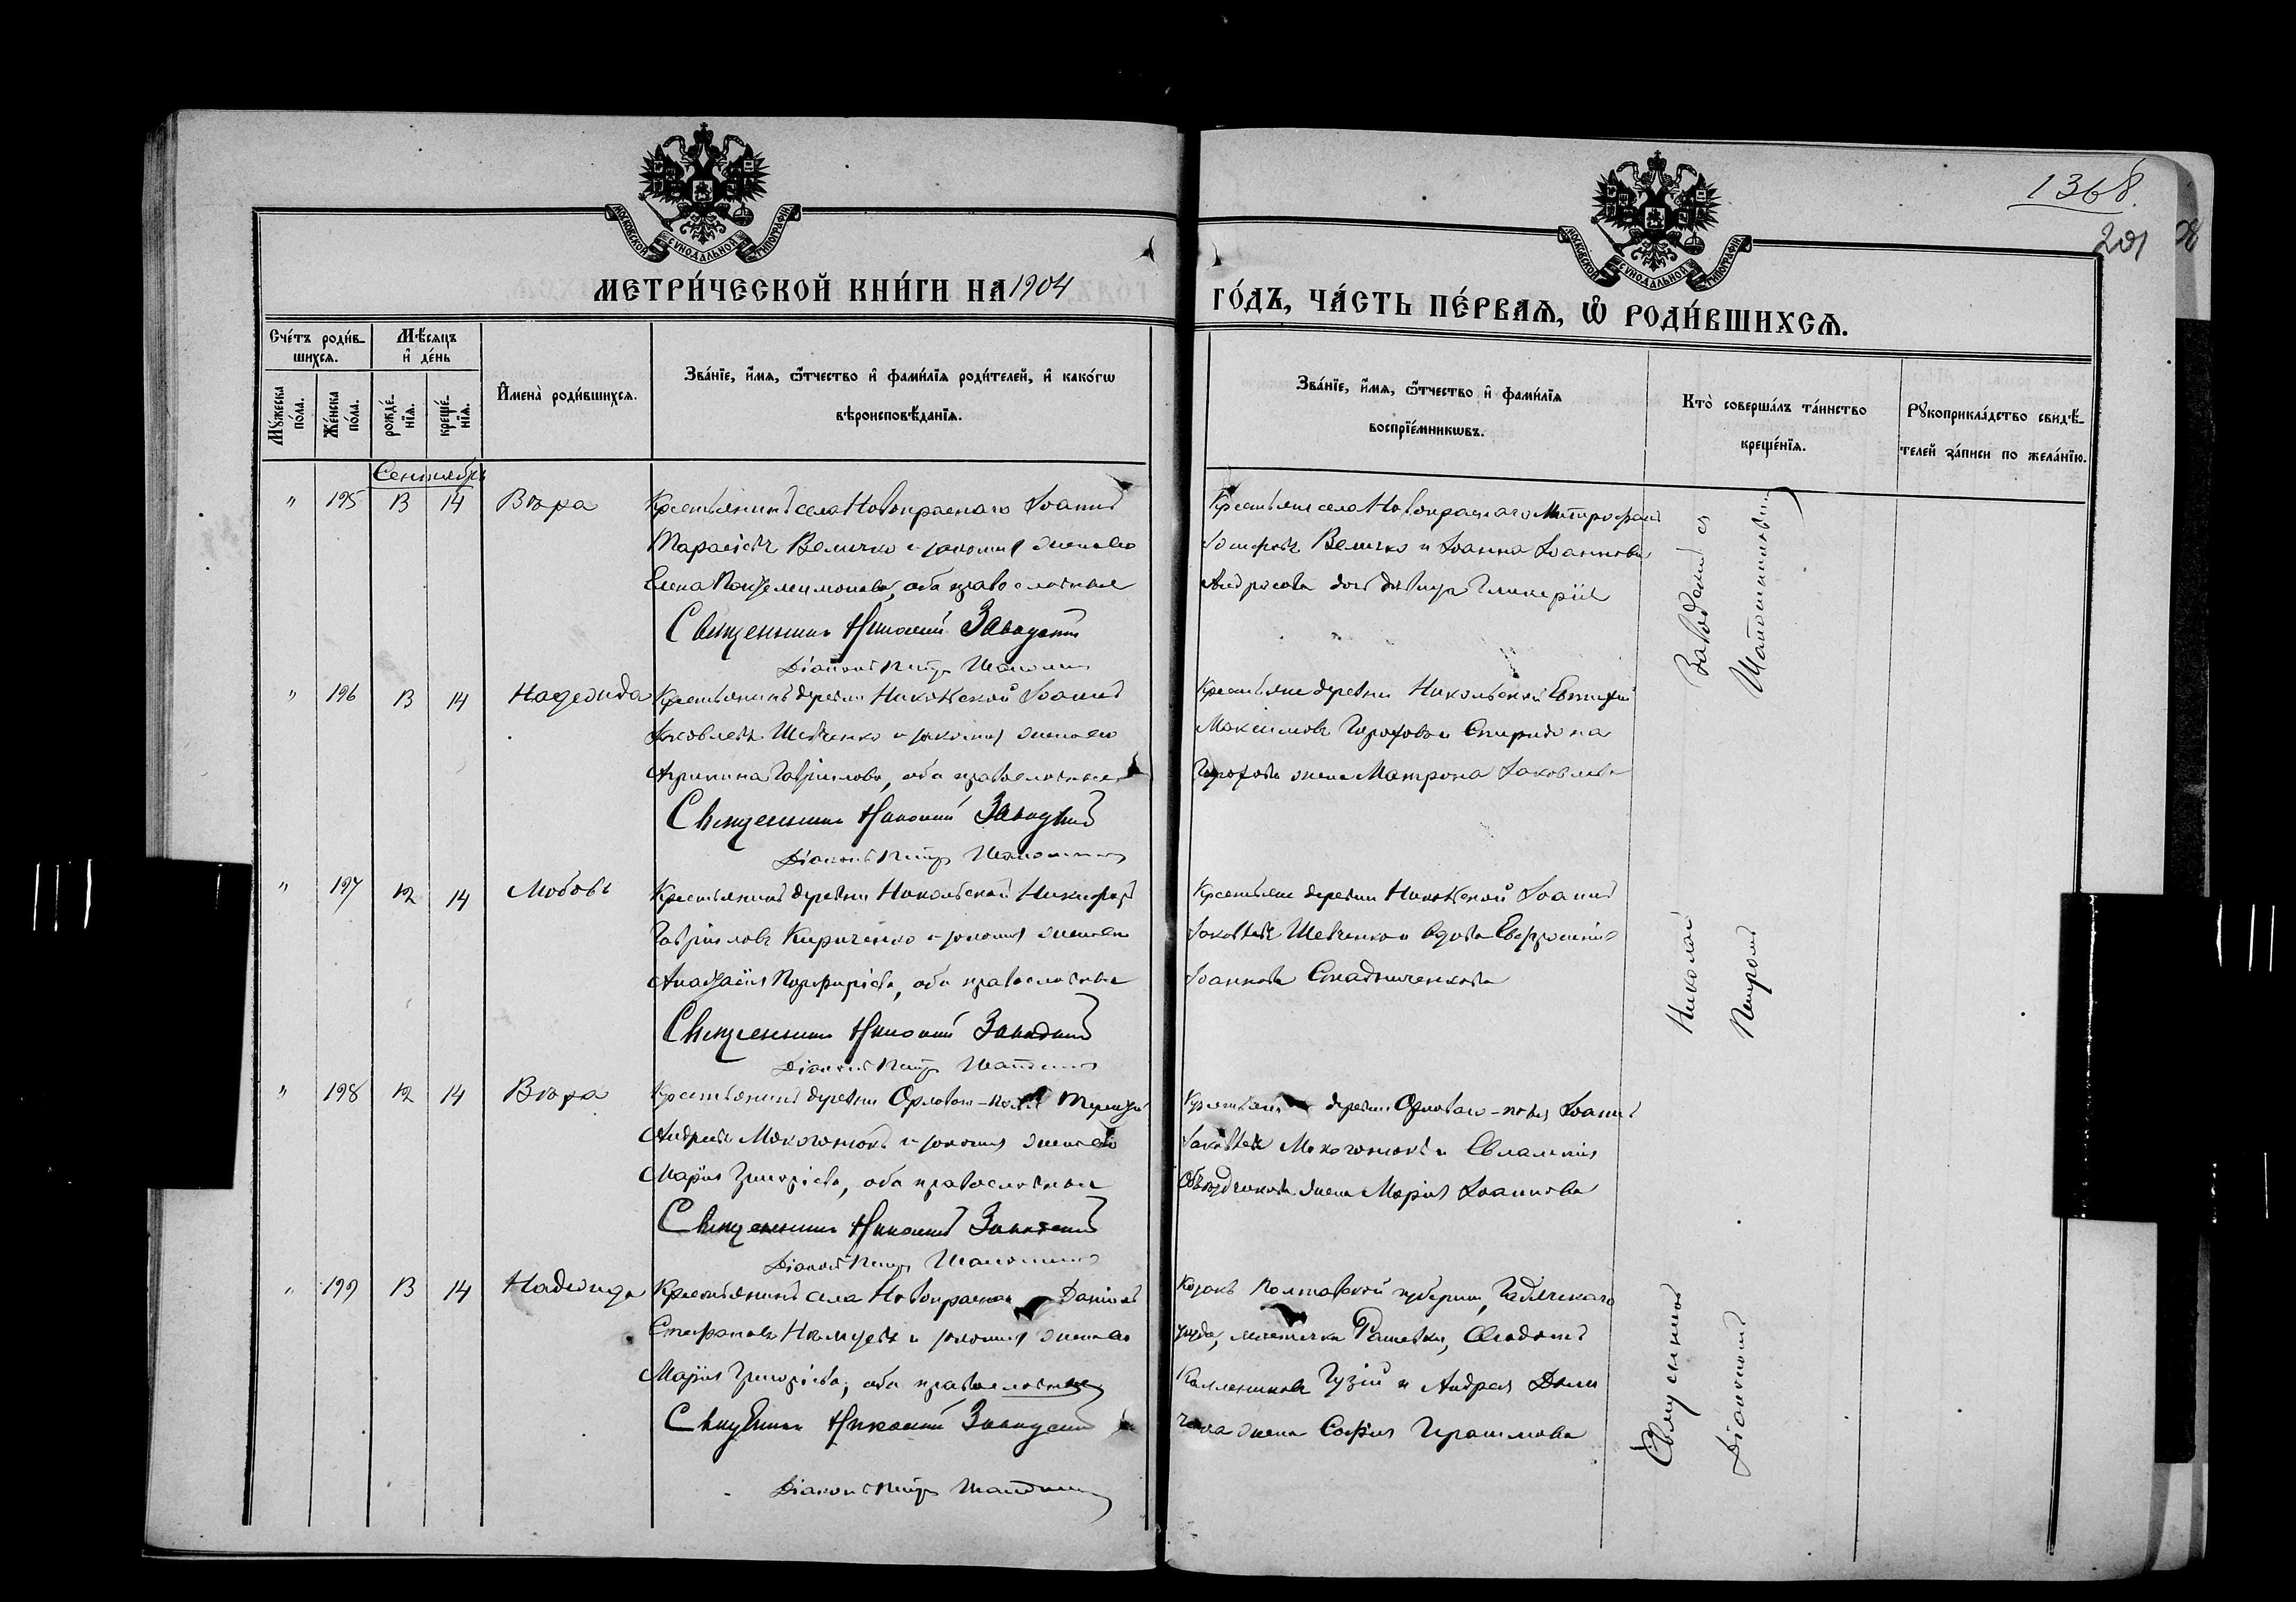 1368.
201
МОСКОВСКОЙ СѴНОДАЛЬНОЙ ТИПОГРАФІИ
МОСКОВСКОЙ СѴНОДАЛЬНОЙ ТИПОГРАФІИ
МЕТРИ́ЧЕСКОЙ КНИ́ГИ НА 1904
ГО́ДЪ, ЧА́СТЬ ПЕ́РВАѦ, Ѡ РОДИ́ВШИХСѦ.
Сче́тъ роди́в-
шихсѧ.
Мꙋ́жеска
по́ла.
Же́нска
по́ла.
Мѣ́сѧцъ
и҆ де́нь
рожде́-
нїѧ.
креще́-
нїѧ.
И҆мена̀ роди́вшихсѧ.
Зва́нїе, и҆́мѧ, ѻ҆́тчество и҆ фами́лїѧ роди́телей, и҆ како́гѡ
вѣроисповѣ́данїѧ.
Зва́нїе, и҆́мѧ, ѻ҆́тчество и҆ фами́лїѧ
воспрїе́мникѡвъ.
Кто̀ соверша́лъ та́инство
креще́нїѧ.
Рꙋкоприкла́дство свидѣ́-
телей за́писи по жела́нїю.
Сентябрь
" 195 13 14 Вѣра
Крестьянинъ села Новокраснаго Іоаннъ
Тарасіевъ Величко и законная жена его
Елена Пантелеимонова, оба православные
Священникъ Николай Заводскій
Діаконъ Петръ
Крестьяне села Новокраснаго Митрофанъ
Іосифовъ Величко и Іоанна Іоаннова
Андросова дочь дѣвица Гликерія
" 196 13 14 Надежда
Крестьянинъ деревни Никольской Іоаннъ
Іаковлевъ Шевченко и законная жена его
Агрипина Гавріилова, оба православные
Священникъ Николай Заводскій
Діаконъ Петръ
Крестьяне деревни Никольской Евтихій
Максимовъ Горохова и Спиридона
Горохова жена Матрона Іаковлева
" 197 12 14 Любовь
Крестьянинъ деревни Никольской Никифоръ
Гавріиловъ Кириченко и законная жена его
Анастасія Порфиріева, оба православные
Священникъ Николай Заводскій
Діаконъ Петръ
Крестьяне деревни Никольской Іоаннъ
Іаковлевъ Шевченко и вдова Евфросинія
Іоаннова Стадниченкова
" 198 12 14 Вѣра
Крестьянинъ деревни Орловаго-поля Терентій
Андреевъ Мокогонюкъ и законная жена его
Марія Григоріева, оба православные
Священникъ Николай Заводскій
Діаконъ Петръ
Крестьяне деревни Орловаго-поля Іоаннъ
Іаковлевъ Мокогонюкъ и Евлампія
Объѣздчикова жена Марія Іоаннова
" 199 13 14 Надежда
Крестьянинъ села Новокраснаго Даніилъ
Стефановъ и законная жена его
Марія Григоріева, оба православные
Священникъ Николай Заводскій
Діаконъ Петръ
Козакъ Полтавской губерніи, Гадячскаго
уѣзда, мѣстечка Рашевки, Ѳеодотъ
Каллениковъ Гузій и Андрея
жена Софія Герасимова
Священникъ Николай Заводскій и
Діакономъ Петромъ